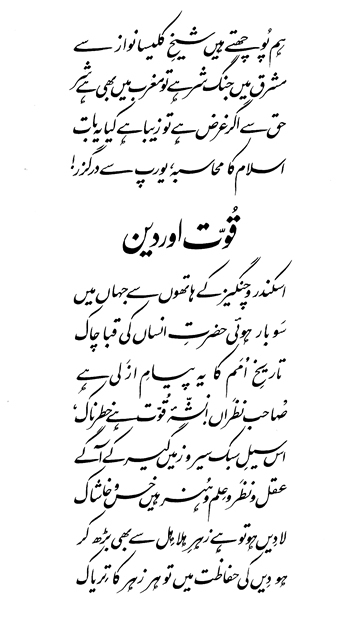 ہم پُوچھتے ہیں شیخِ کلیسا نواز سے
مشرق میں جنگ شر ہے تو مغرب میں بھی ہے شر
حق سے اگر غرض ہے تو زیبا ہے کیا یہ بات
اسلام کا محاسبہ، یورپ سے درگزر!
قُوّت اور دین
اسکندر و چنگیز کے ہاتھوں سے جہاں میں
سَو بار ہوئی حضرتِ انساں کی قبا چاک
تاریخِ اُمَم کا یہ پیامِ ازَلی ہے
صاحب نظراں! نشّۂ قُوّت ہے خطرناک،
اس سیلِ سبک سیر و زمیں گیر کے آگے
عقل و نظر و علم و ہُنر ہیں خس و خاشاک
لا دِیں ہو تو ہے زہرِ ہلاہِل سے بھی بڑھ کر
ہو دِیں کی حفاظت میں تو ہر زہر کا تریاک